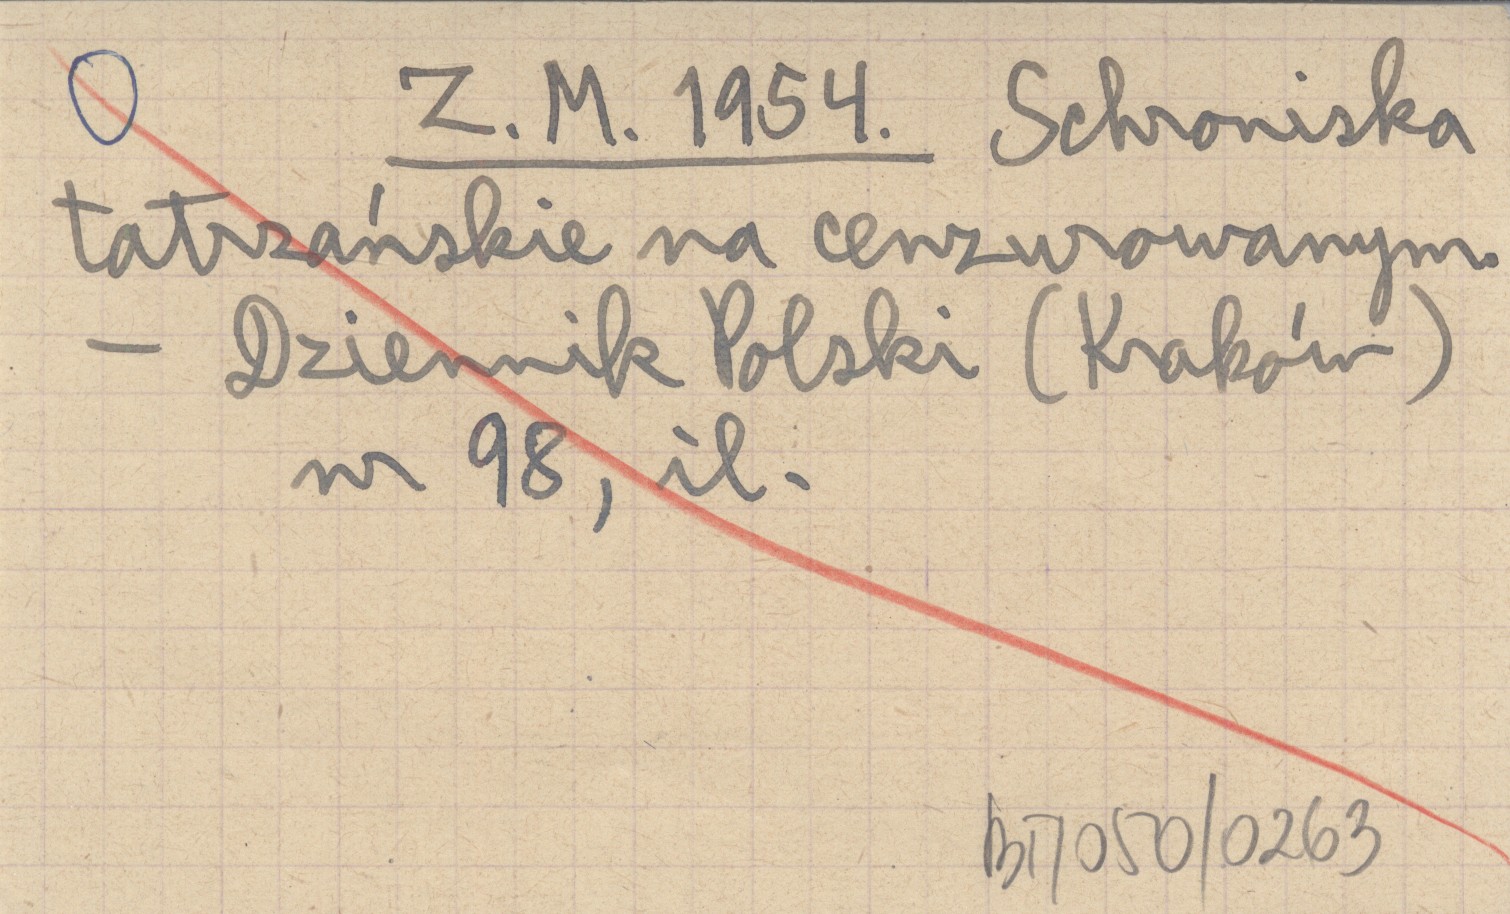 Z. M. 1954. Schroniska
tatrzańskie na cenzurowanym.
– Dziennik Polski (Kraków)
nr 98, il.
BT/050/0263